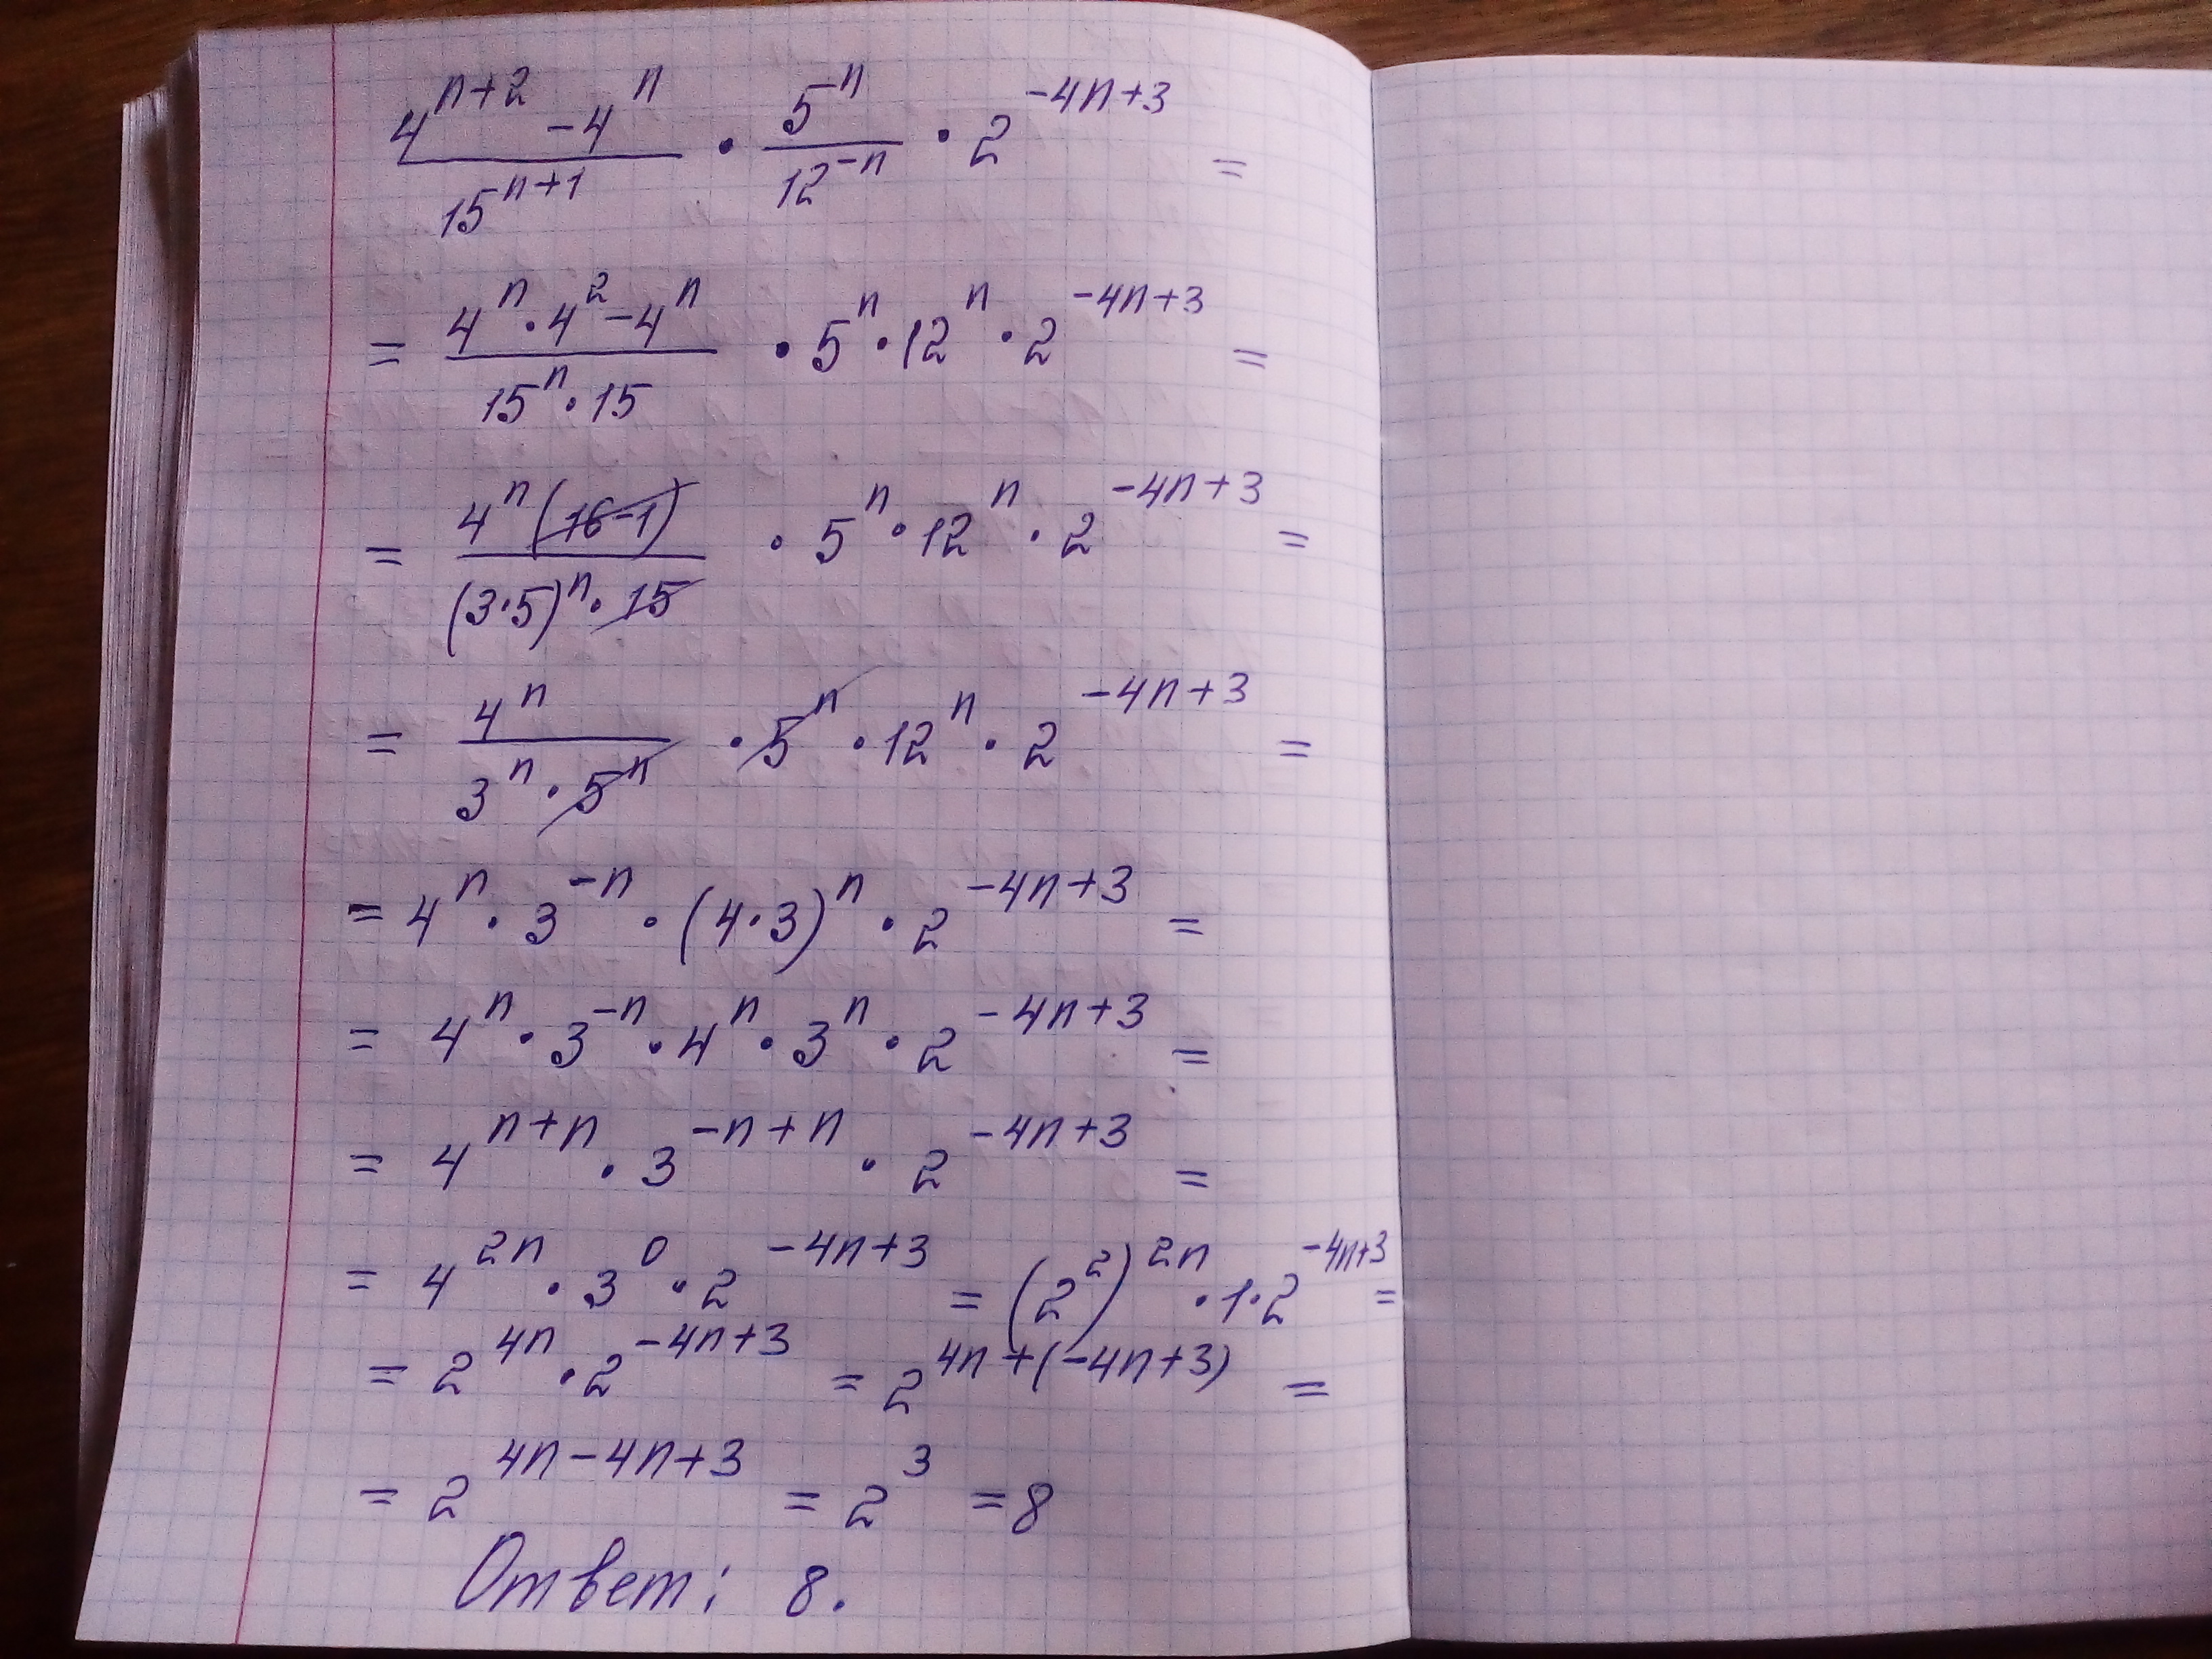 (4^(n+2) - 4^n)/15^(n+1) · 5^n/12^(-n) · 2^(-4n+3) =
= (4^n · 4^2 - 4^n)/(15^n · 15) · 5^n · 12^n · 2^(-4n+3) =
= 4^n(16-1)/((3·5)^n · 15) · 5^n · 12^n · 2^(-4n+3) =
= 4^n/(3^n · 5^n) · 5^n · 12^n · 2^(-4n+3) =
= 4^n · 3^(-n) · (4·3)^n · 2^(-4n+3) =
= 4^n · 3^(-n) · 4^n · 3^n · 2^(-4n+3) =
= 4^(n+n) · 3^(-n+n) · 2^(-4n+3) =
= 4^(2n) · 3^0 · 2^(-4n+3) = (2^2)^(2n) · 1 · 2^(-4n+3) =
= 2^(4n) · 2^(-4n+3) = 2^(4n+(-4n+3)) =
= 2^(4n-4n+3) = 2^3 = 8
Ответ: 8.